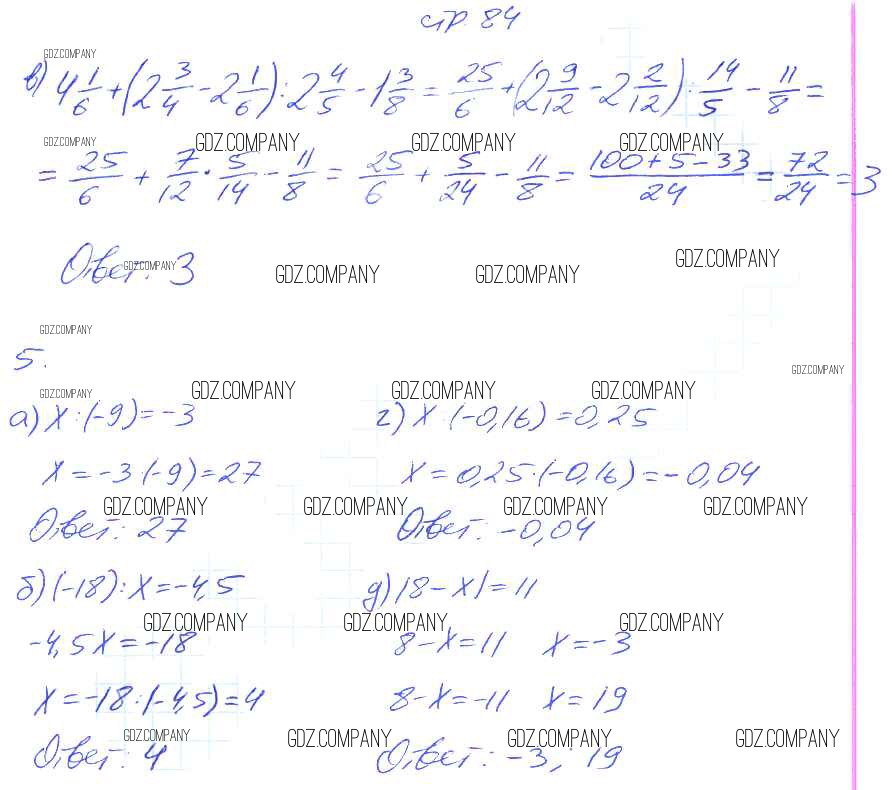 стр. 84
GDZ.COMPANY
в) 4 1/6 + (2 3/4 - 2 1/6) : 2 4/5 - 1 3/8 = 25/6 + (2 9/12 - 2 2/12) : 14/5 - 11/8 =
GDZ.COMPANY GDZ.COMPANY GDZ.COMPANY GDZ.COMPANY
= 25/6 + 7/12 · 5/14 - 11/8 = 25/6 + 5/24 - 11/8 = (100+5-33)/24 = 72/24 = 3
Ответ: 3
GDZ.COMPANY GDZ.COMPANY GDZ.COMPANY GDZ.COMPANY
GDZ.COMPANY
5.
GDZ.COMPANY
GDZ.COMPANY GDZ.COMPANY GDZ.COMPANY GDZ.COMPANY
а) X : (-9) = -3
X = -3 · (-9) = 27
GDZ.COMPANY GDZ.COMPANY GDZ.COMPANY GDZ.COMPANY
Ответ: 27
б) (-18) : X = -4,5
GDZ.COMPANY GDZ.COMPANY GDZ.COMPANY
-4,5X = -18
X = -18 : (-4,5) = 4
GDZ.COMPANY GDZ.COMPANY GDZ.COMPANY GDZ.COMPANY
Ответ: 4
г) X : (-0,16) = 0,25
X = 0,25 · (-0,16) = -0,04
Ответ: -0,04
д) |8 - X| = 11
8 - X = 11 X = -3
8 - X = -11 X = 19
Ответ: -3; 19